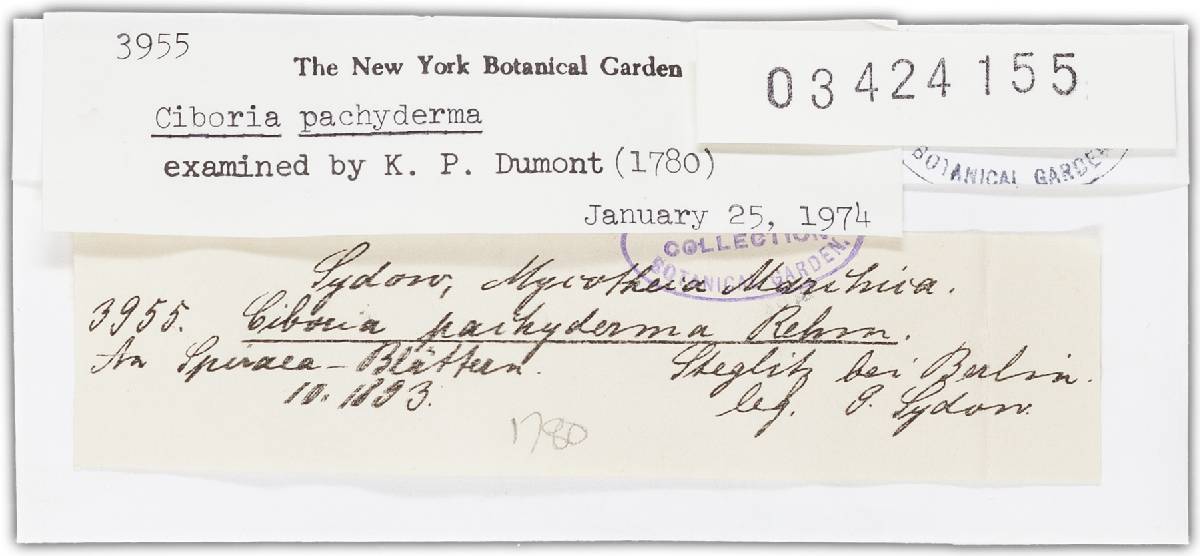 3955
The New York Botanical Garden
03424155
Ciboria pachyderma
examined by K. P. Dumont (1780)
BOTANICAL GARDEN
January 25, 1974
COLLECTION
BOTANICAL GARDEN.
Sydow, Mycotheca Marchica.
3955. Ciboria pachyderma Rehm.
An Spiraea-Blättern. Steglitz bei Berlin.
10. 1893. leg. P. Sydow.
1780